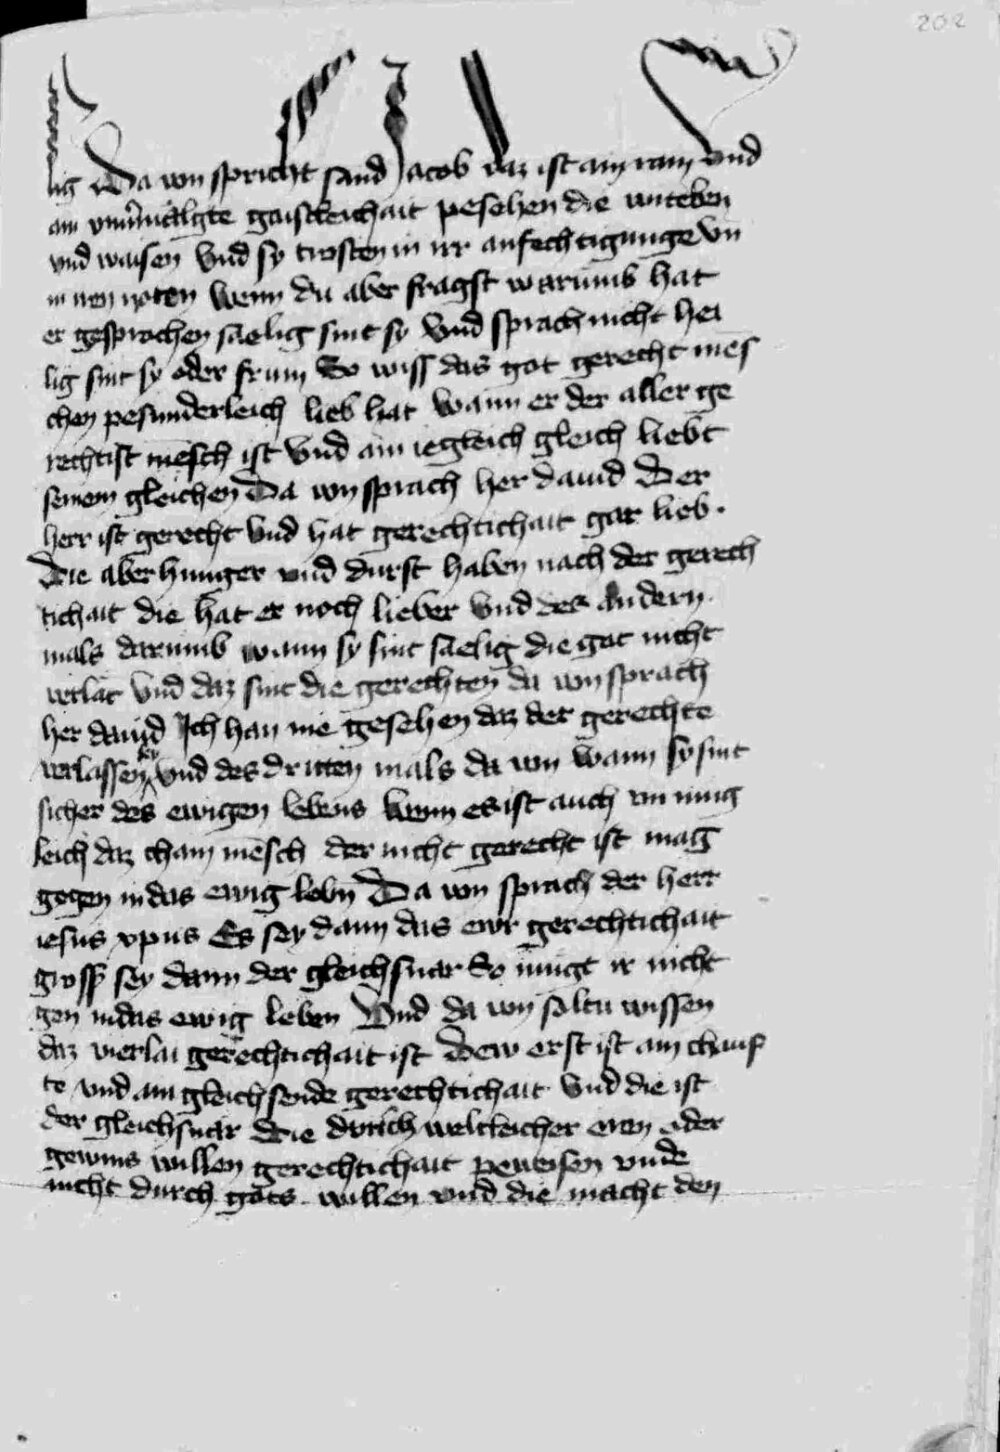 202
lig Da von spricht sand Jacob daz ist ain rain vnd
ain vnuermäilgte gaistleichait pesehen die witeben
vnd waisen Vnd sy trosten in irr anfechtigunge vn̄
in iren noten Wenn du aber fragst warumb hat
er gesprochen saelig sint sy Vnd sprach nicht hei
lig sint sy oder frum So wiss das got gerecht mēs
chen pesunderleich lieb hat Wann er der aller ge
rechtist mēsch ist Vnd ain iegleich gleich liebt
seinem gleichen Da von sprach her dauid Der
herr ist gerecht Vnd hat gerechtichait gar lieb.
Die aber hunger vnd durst haben nach der gerech
tichait die hat er noch lieber Vnd des Andern
mals darumb wann sy sint saelig die got nicht
verlat Vnd daz sint die gerechten da von sprach
her dauid Ich han nie gesehen daz der gerechte
verlassen sey Vnd des dritten mals da von Wann sy sint
sicher des ewigen lebens Wenn es ist auch vn mug
leich daz chain mēsch der nicht gerecht ist mag
gegen in das ewig lebn̄ Da von sprach der herr
iesus xpus Es sey dann das ewr gerechtichait
grosser sey dann der gleichsnar So mugt ir nicht
gen in das ewig leben Vnd da von soltu wissen
daz vierlai gerechtichait ist Dew erst ist ain chauf
te vnd ain gleichsende gerechtichait Vnd die ist
der gleichsnar Die durich weltleicher eren oder
gewins willen gerechtichait peweisen vnde
nicht durch gots willen vnd die macht den